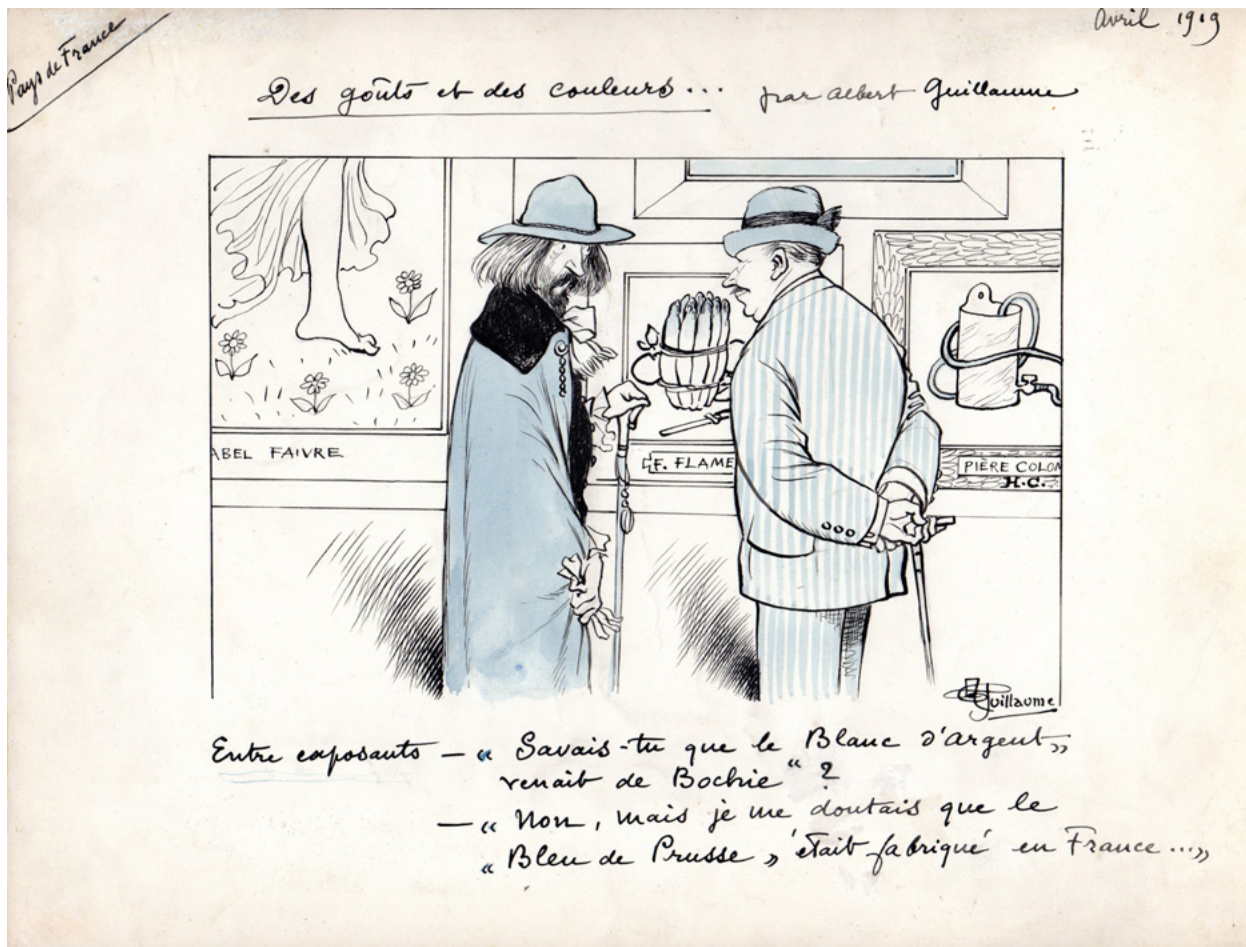 Pays de France
Avril 1919
Des goûts et des couleurs... par Albert Guillaume
ABEL FAIVRE
F. FLAME
PIÈRE COLOM
H.C.
Guillaume
Entre exposants — « Savais-tu que le "Blanc d'argent"
venait de Bochie " ?
— « Non, mais je me doutais que le
« Bleu de Prusse » était fabriqué en France ...»